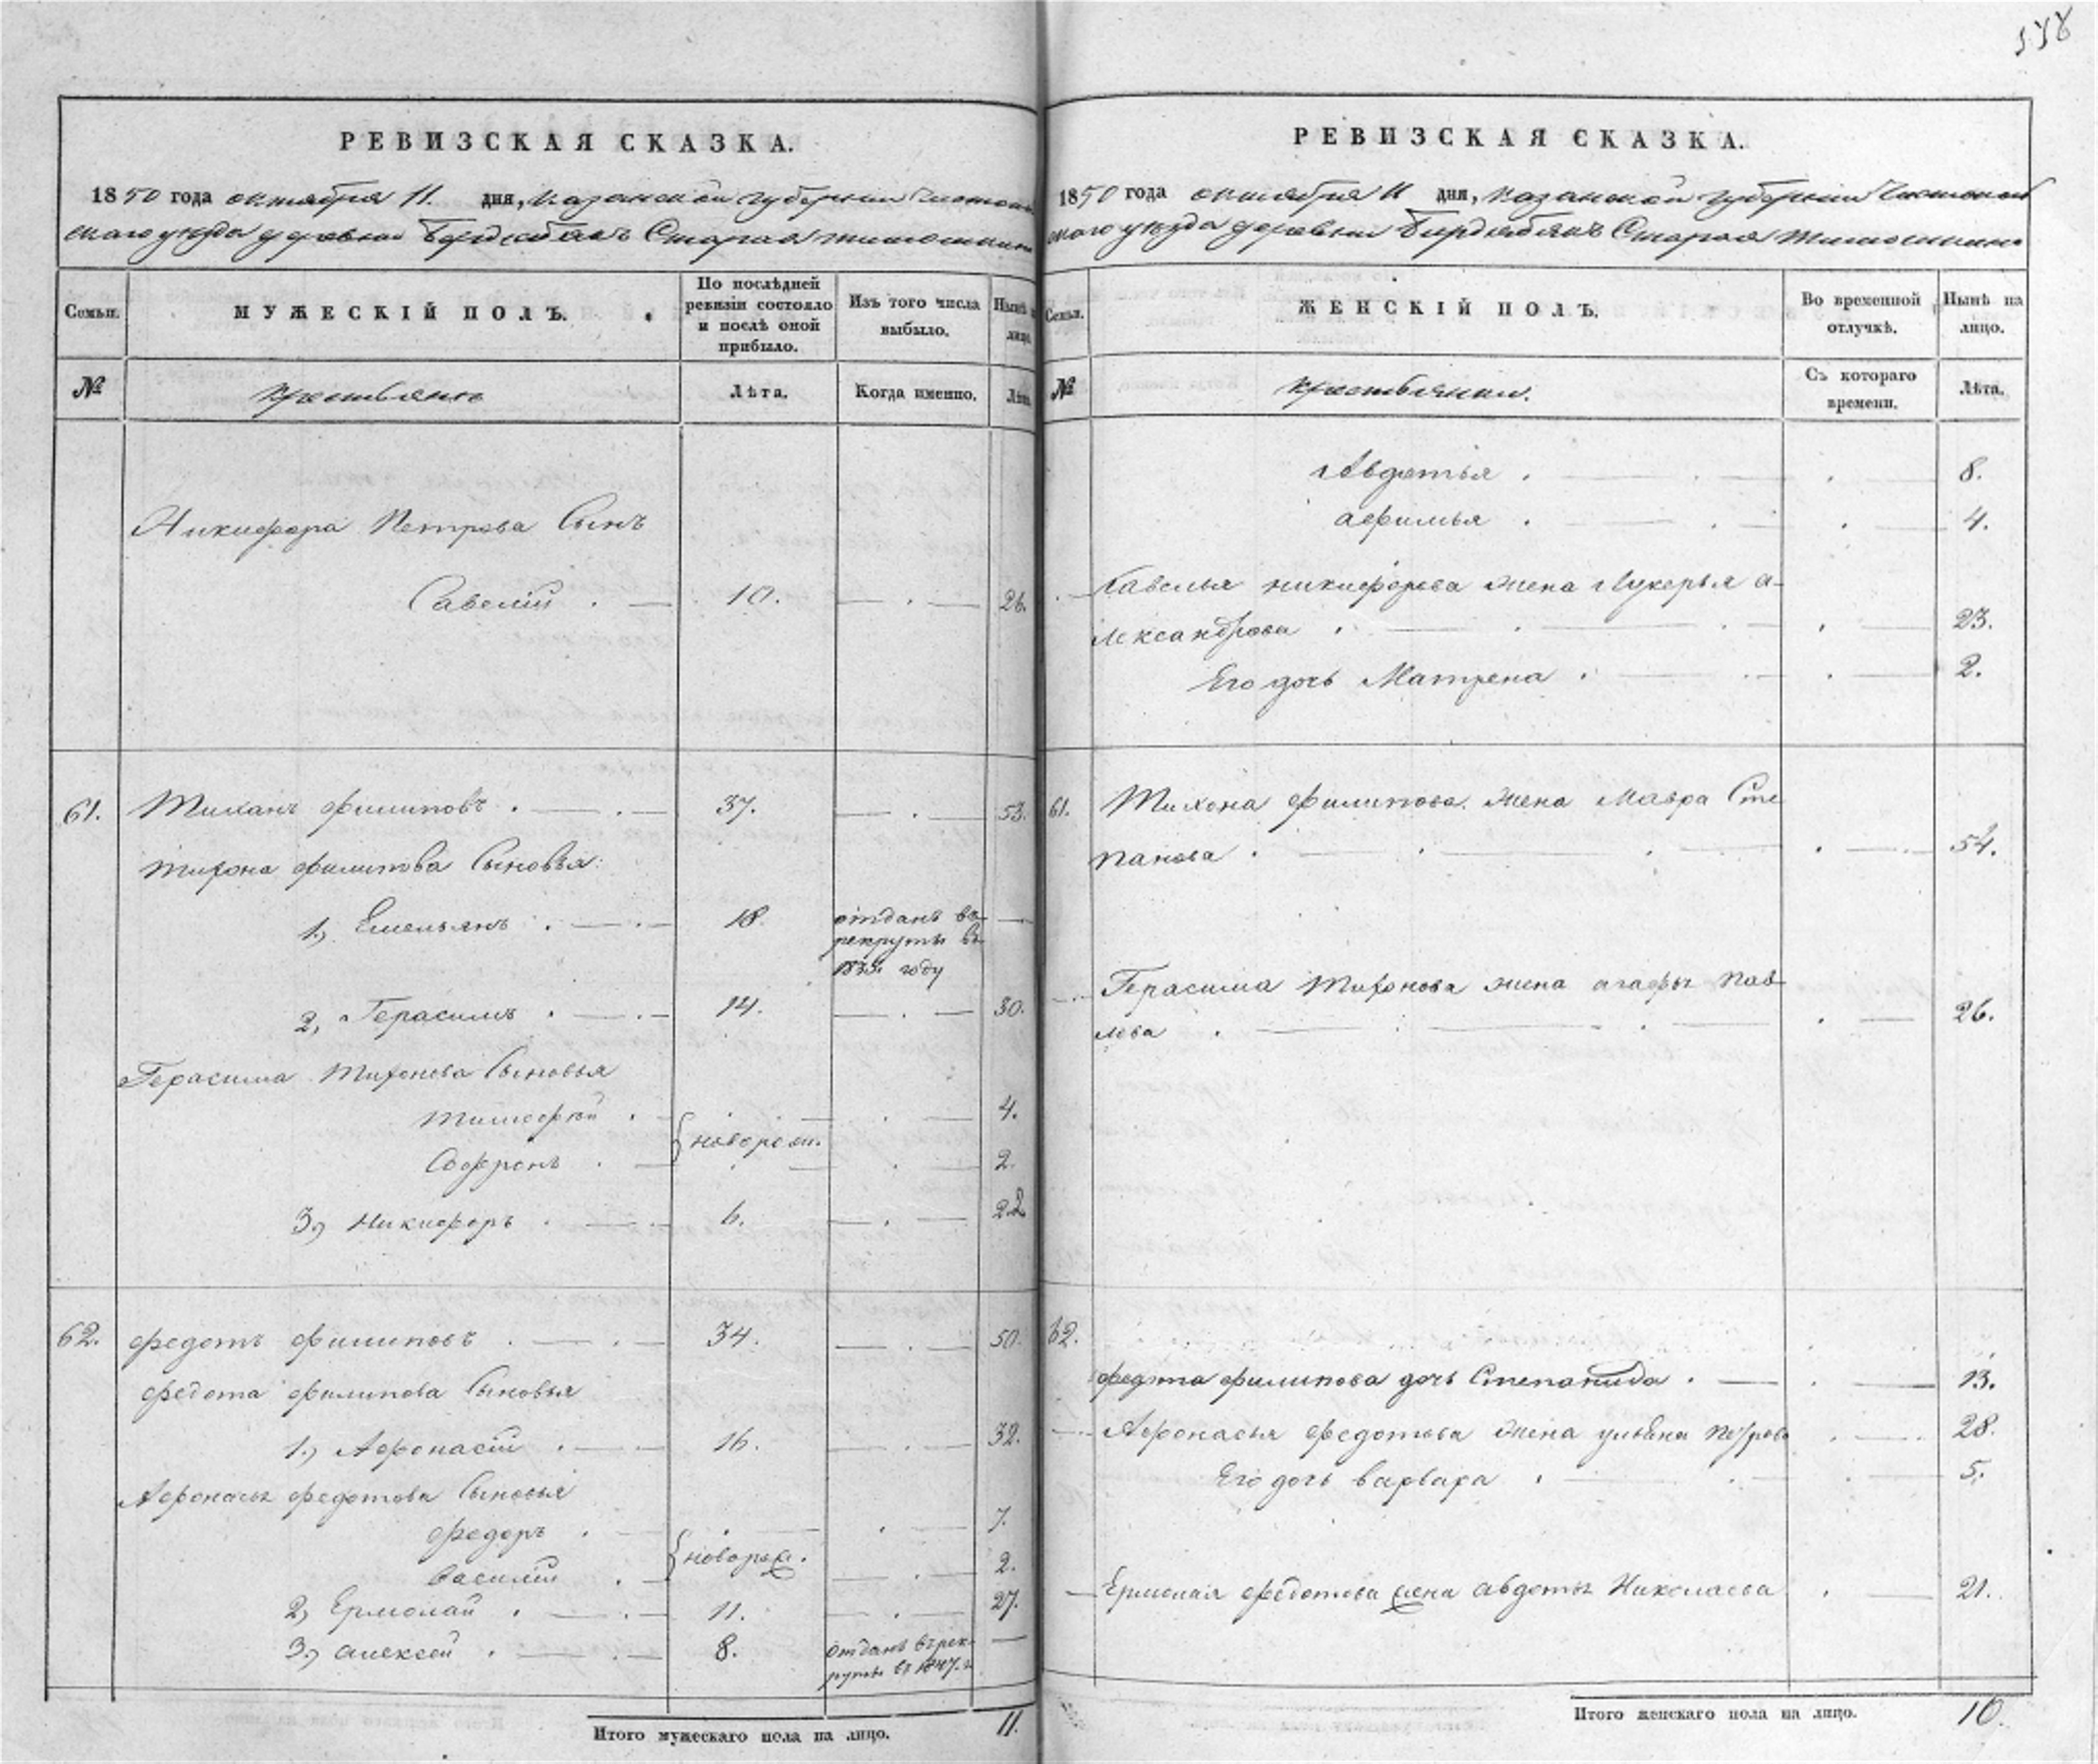 578
РЕВИЗСКАЯ СКАЗКА.
1850 года октября 11. дня, казанской губерніи Чистополь
скаго уѣзда деревни Бердебякъ Старая тимошкино
Семьи.
МУЖЕСКІЙ ПОЛЪ.
По послѣдней ревизіи состояло и послѣ оной прибыло.
Изъ того числа выбыло.
Нынѣ на лицо.
№
крестьянъ
Лѣта.
Когда именно.
Лѣта.
Никифора Петрова Сынъ
Савелій . — 10. — . — 26.
61. Тиханъ филиповъ . — . — 37. — . — 53.
тихона филипова Сыновья:
1., Емельянъ . — . — 18. отданъ въ —
рекруты въ
1835. году
2, Герасимъ . — . — 14. — . — 30.
Герасима Тихонова Сыновья
тимофей . — . — . — 4.
{новорож.
Софронъ . — . — . — 2.
3., Никифоръ . — . — 6. — . — 22
62. федотъ филиповъ . — . — 34. — . — 50.
федота филипова Сыновья
1., Афонасій . — . — 16. — . — 32.
Афонасья федотова Сыновья
федоръ . — . — . — 7.
{новорож.
василій . — . — 2.
2, Ермолай . — . — 11. — . — 27.
3., алексей . — . — 8. отданъ въ рек- —
руты въ 1847. г.
Итого мужескаго пола на лицо. 11.
РЕВИЗСКАЯ СКАЗКА.
1850 года октября 11 дня, казанской губерніи Чистополь
скаго уѣзда деревни Бердебякъ Старая тимошкино
Семьи.
ЖЕНСКІЙ ПОЛЪ.
Во временной отлучкѣ.
Нынѣ на лицо.
№
крестьянки.
Съ котораго времени.
Лѣта.
Авдотья . — . — . — 8.
афимья . — . — . — 4.
Савелья никифорова жена Лукерья а-
лександрова . — . — . — . — 23.
Его дочь Матрена . — . — . — 2.
61. Тихона филипова. жена Мавра Сте
панова . — . — . — . — . — 54.
Герасима Тихонова жена агафья Пав-
лова . — . — . — . — 26.
62.
федота филипова дочь Степанида . — . — 13.
Афонасья федотова жена ульяна петрова . — . 28.
Его дочь варвара . — . — . — 5.
Ермолая федотова жена авдотья Николаева . — 21.
Итого женскаго пола на лицо. 10.